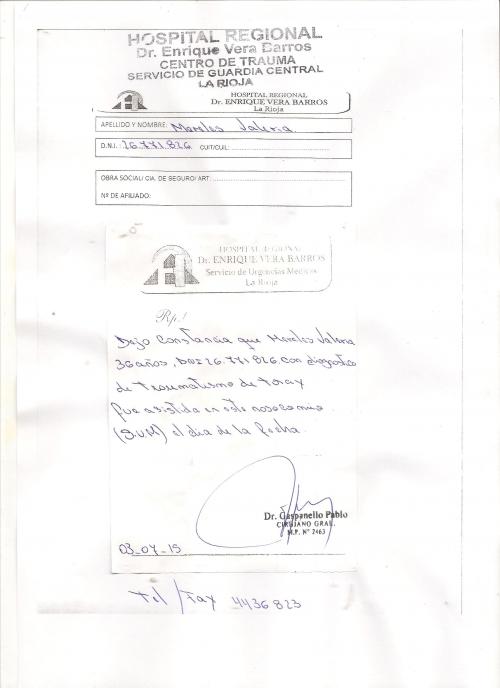 HOSPITAL REGIONAL
Dr. Enrique Vera Barros
CENTRO DE TRAUMA
SERVICIO DE GUARDIA CENTRAL
LA RIOJA
HOSPITAL REGIONAL
Dr. ENRIQUE VERA BARROS
La Rioja
APELLIDO Y NOMBRE: Morales Valeria
D.N.I. 26.771.826 CUIT/CUIL:
OBRA SOCIAL/ CIA. DE SEGURO/ ART:
Nº DE AFILIADO:
HOSPITAL REGIONAL
Dr. ENRIQUE VERA BARROS
Servicio de Urgencias Médicas
La Rioja
Rp.!
Dejo Constancia que Morales Valeria
36 años, DNI 26.771.826, con diagnostico
de Traumatismo de torax
fue asistida en este nosocomio
(S.U.M) el dia de la fecha.
Dr. Gaspanello Pablo
CIRUJANO GRAL.
M.P. Nº 2463
03_07_15
Tel / Fax 4436823